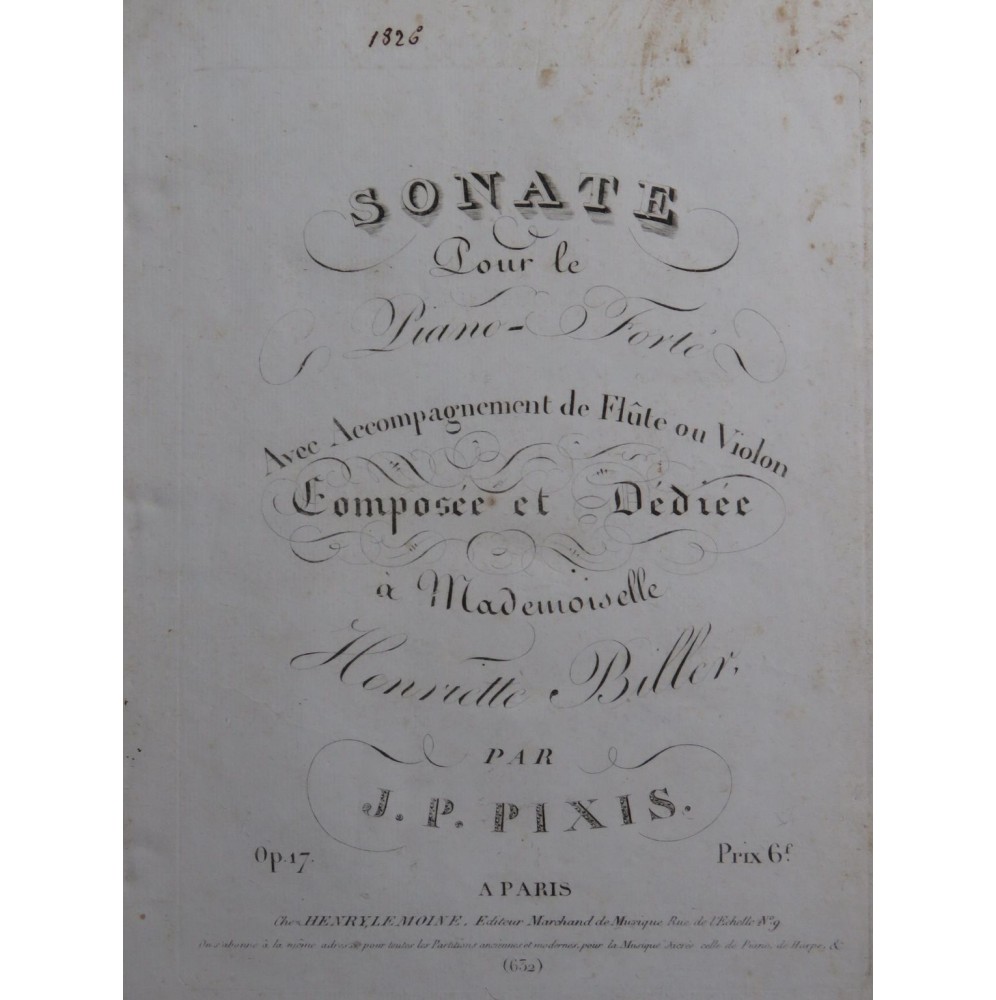 1826
SONATE
Pour le
Piano-Forté
Avec Accompagnement de Flûte ou Violon
Composée et Dédiée
à Mademoiselle
Henriette Biller,
PAR
J. P. PIXIS.
Op. 17. Prix 6f.
A PARIS
Chez HENRY LEMOINE, Editeur Marchand de Musique, Rue de l'Echelle No. 9
On s'abonne à la même adresse pour toutes les Partitions anciennes et modernes, pour la Musique Sacrée celle de Piano, de Harpe, &
(632)